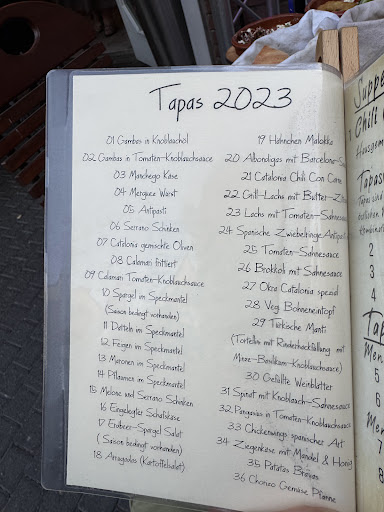 Tapas 2023
01 Gambas in Knoblauchöl
02 Gambas in Tomaten-Knoblauchsauce
03 Manchego Käse
04 Merguez Wurst
05 Antipasti
06 Serrano Schinken
07 Catalonia gemischte Oliven
08 Calamari frittiert
09 Calamari Tomaten-Knoblauchsauce
10 Spargel im Speckmantel
(Saison bedingt vorhanden)
11 Datteln im Speckmantel
12 Feigen im Speckmantel
13 Maronen im Speckmantel
14 Pflaumen im Speckmantel
15 Melone und Serrano Schinken
16 Eingelegter Schafskäse
17 Erdbeer-Spargel Salat
(Saison bedingt vorhanden)
18 Arrugados (Kartoffelsalat)
19 Hähnchen Mallorka
20 Albondigas mit Barcelona-S
21 Catalonia Chili Con Carne
22 Grill-Lachs mit Butter-Zitro
23 Lachs mit Tomaten-Sahnesauce
24 Spanische Zwiebelringe Antipasti
25 Tomaten-Sahnesauce
26 Brokkoli mit Sahnesauce
27 Okra Catalonia spezial
28 Veg. Bohneneintopf
29 Türkische Manti
(Tortellini mit Rinderhackfüllung mit
Minze-Basilikum-Knoblauchsauce)
30 Gefüllte Weinblätter
31 Spinat mit Knoblauch-Sahnesauce
32 Pangasius in Tomaten-Knoblauchsauce
33 Chickenwings spanischer Art
34 Ziegenkäse mit Mandel & Honig
35 Patatas Bravas
36 Chorizo Gemüse Pfanne
Suppe
1 Chili
Hausgem
Tapas
Tapas sind
2
3
4
Ta
Men
5
6
Men
7
8